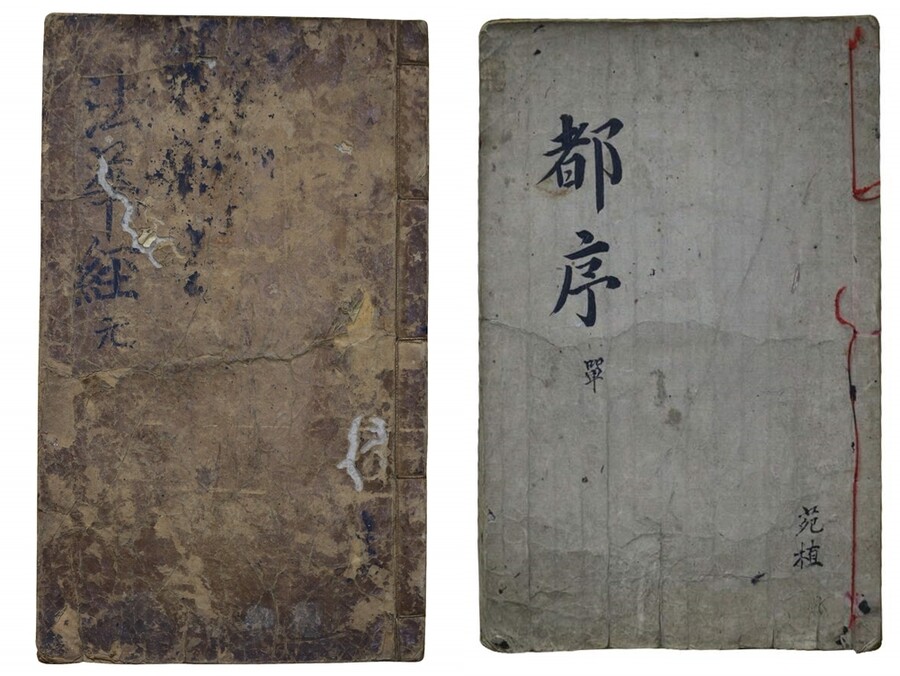 法華經
元
都序
單
苑植